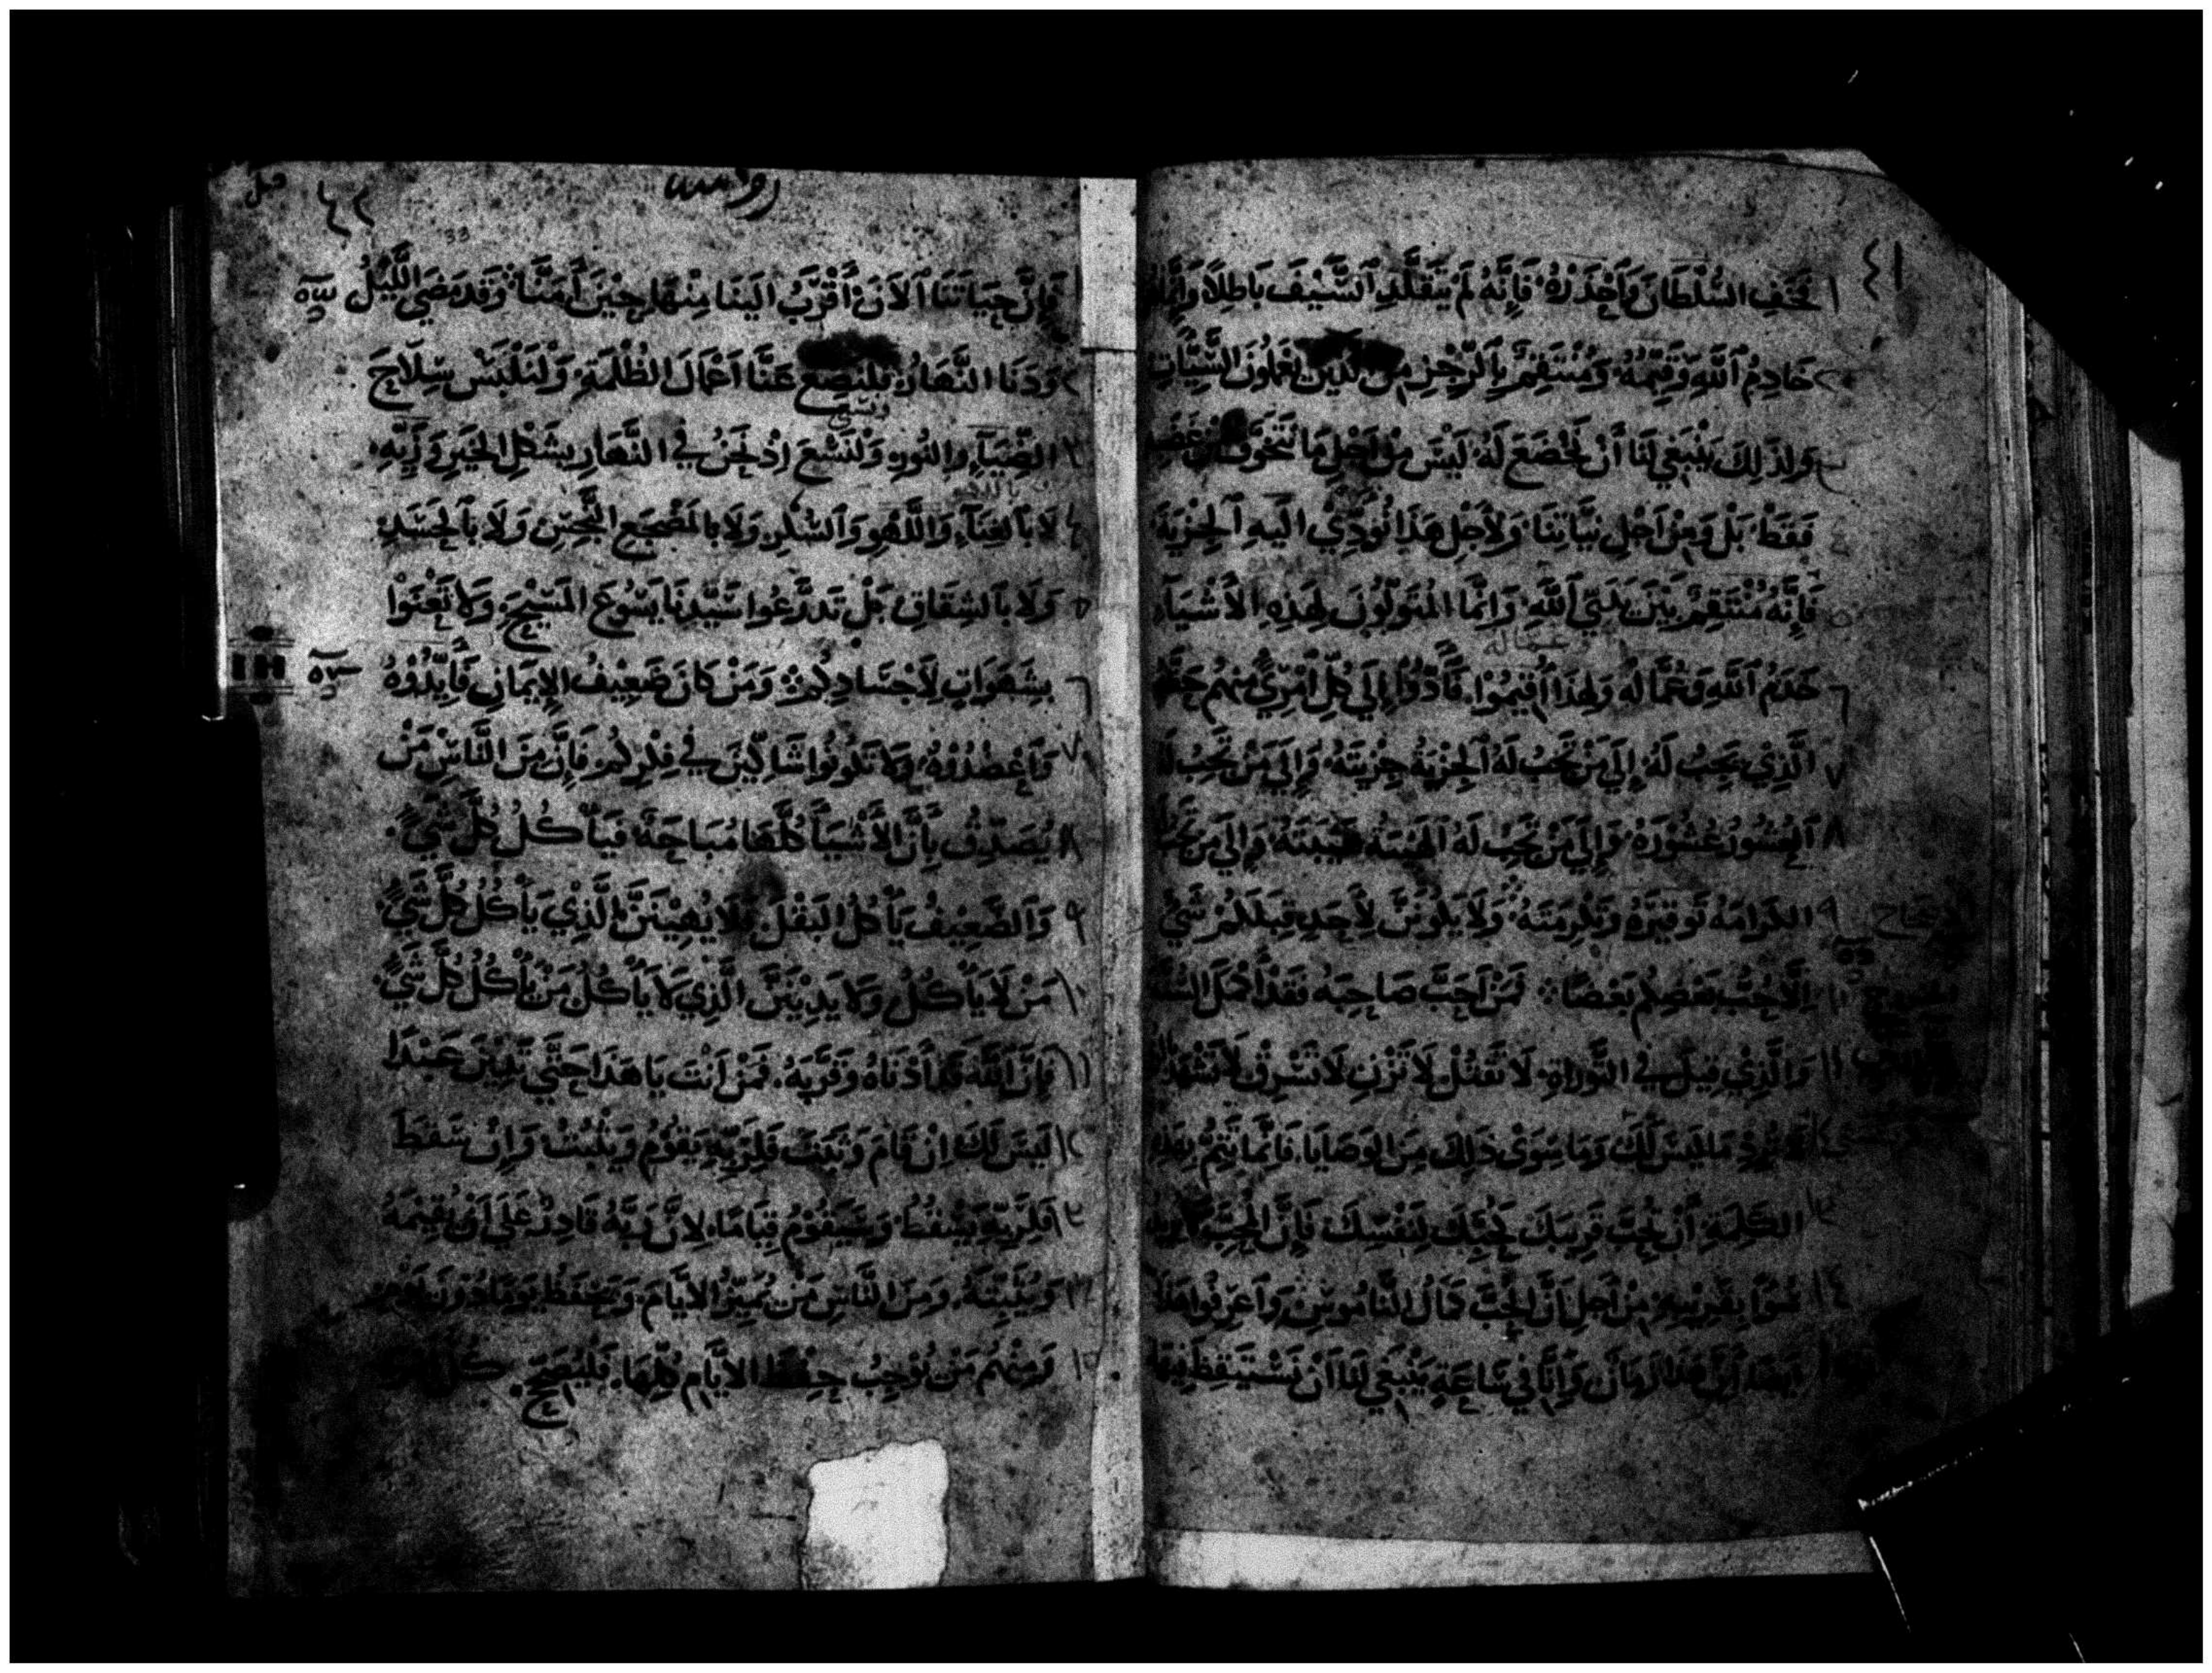 ٤١
١ تَخَفِ السُّلْطَانَ وَاَحْذَرْهُ فَإِنَّهُ لَمْ يَتَقَلَّدِ اَلسَّيْفَ بَاطِلًا وَإِنَّمَا
٢ خَادِمُ اَللهِ وَقَيِّمُهُ وَمُنْتَقِمٌ بِاَلرِّجْزِ مِنَ الَّذِينَ يَعْمَلُونَ السَّيِّاتِ
٣ وَلِذَلِكَ يَنْبَغِي لَنَا أَنْ نَخْضَعَ لَهُ لَيْسَ مِنْ اَجْلِ مَا نَتَخَوَّفُ مِنْ غَضَبِهِ
٤ فَقَطْ بَلْ وَمِنْ اَجْلِ نِيَّاتِنَا وَلِأَجْلِ هَذَا نُوَدِّي اِلَيهِ اَلْجِزْيَةَ
٥ فَإِنَّهُ مُنْتَقِمٌ بَيْنَ يَدَيِ اَللهِ وَاِنَّمَا المُتَوَلُّونَ لِهَذِهِ الأَشْيَآءِ
وعماله
٦ خَدَمُ اَللهِ وَعُمَّالُه وَلِهَذَا اُقِيمُوا فَأَدُّوا إِلَي كُلِّ اَمْرِيٍ مِنهُم حَقَّهُ
٧ الَّذِي يَجِبُ لَهُ إِلَي مَنْ تَجِبُ لَهُ اَلْجِزْيَةُ جِزْيَتَهُ وَإِلَي مَنْ تَجِبُ لَهُ
٨ اَلْعُشُورُ عُشُورَهُ وَإِلَي مَنْ تَجِبُ لَهُ اَلهَيْبَةُ هَيْبَتَهُ وَإِلَي مَنْ تَجِبُ
٩ الكَرَامَهُ تَوقِيرَهُ وَتَكْرِمَتَهُ وَلَا يَكُونَنَّ لأَحَدٍ قِبَلَكُمْ شَيْ
١٠ اِلَّا حُبَّ بَعْضِكُم بَعْضًا فَمَنْ اَحَبَّ صَاحِبَه فَقَدْ أَكْمَلَ السُّنَّةَ
١١ وَالَّذِي قِيلَ فِي التَّورَاةِ لَا تَقْتُلْ لَا تَزْنِ لَا تَسْرِقْ لَا تَشْهَدْ
١٢ تُرِدْ مَا لَيسَ لَكَ وَمَا سِوَىْ ذَلِكَ مِنَ الوَصَايَا فَإِنَّمَا يَتِمُّ بِهَذِهِ
١٣ الكَلِمَةِ أَنْ تُحِبَّ قَرِيبَكَ كَحُبِّكَ لِنَفْسِكَ فَإِنَّ الْمُحِبَّ لَا يُرِيدُ
١٤ سُوَا بِقَرِيبِهِ مِنْ أَجْلِ اَنَّ الحُبَّ كَمَالُ النَّامُوسِ وَاَعْرِفُوا هَذَا
١٥ اَيضَا أَنَّ هَذَا زَمَانٌ وَاِنَّا فِي سَاعَةٍ يَنْبَغِي لَنَا أَنْ نَسْتَيقِظَ فِيهَا
٤٢
رومية
33
١ فَإِنَّ حَيَاتَنَا اَلآنَ أَقْرَبُ اِلَينَا مِنْهَا حِيْنَ اَمَنَّا وَقَد مَضَي اللَّيْلُ
٢ وَدَنَا النَّهَارُ فَلْنَضَع عَنَّا اَعْمَالَ الظُّلْمَةِ وَلْنَلْبَسْ سِلَاحَ
ونسعى
٣ الضِّيَآءِ والنُورِ وَلْنَسْعَ اِذْ نَحْنُ فِي النَّهَارِ بِشَكْلِ الخَيرِ وَزَيِّهِ
٤ لَا بِاَلغِنَآءِ وَاللَّهْوِ وَاَلسُّكْرِ وَلَا بِالمَضْجَعِ النَّجِسِ وَلَا بِاَلحَسَدِ
٥ وَلَا بِاَلشِقَاقِ بَلْ تَدَرَّعُوا سَيِّدَنَا يَسُوعَ المَسِيْحَ وَلَا تُعْنَوْا
٦ بِشَهَوَاتِ لِأَجْسَادِكُمْ وَمَنْ كَانَ ضَعِيْفَ الإيمَانِ فَأَيِّدُوْهُ
٧ وَاَعْضُدُوْهُ وَلَا تَكُونُوا شَاكِّيْنَ فِي فِكْرِكُم فَإِنَّ مِنَ النَّاسِ مَنْ
٨ يُصَدِّقُ بِأَنَّ الأَشْيَآءَ كُلَّهَا مُبَاحَةٌ فَيَأْكُلُ كُلَّ شَيْءٍ
٩ وَالضَّعِيْفُ يَأكُلُ البَقْلَ فَلَا يُهِيْنَنَّ الَّذِي يَأْكُلُ كُلَّ شَيْءٍ
١٠ مَنْ لَا يَأْكُلُ وَلَا يَدِيْنَنَّ الَّذِي لَا يَأكُلُ مَنْ يَأْكُلُ كُلَّ شَيْءٍ
١١ فَإِنَّ اَللّٰهَ قَدْ أَدْنَاهُ وَقَرَّبَهُ فَمَنْ اَنْتَ يَا هَذَا حَتَّي تَدِيْنَ عَبْدًا
١٢ لَيسَ لَكَ اِنْ قَامَ وَثَبَتَ فَلِرَبِّهِ يَقُومُ وَيَثْبُتُ وَاِنْ سَقَطَ
١٣ فَلِرَبِّهِ يَسْقُطُ وَسَيَقُوْمُ قِيَامًا لِاَنَّ رَبَّهُ قَادِرٌ عَلَي اَنْ يُقِيمَهُ
١٤ وَيُثَبِّتَهُ وَمِنَ النَّاسِ مَنْ يُمَيِّزُ الاَيَّامَ وَيَحْفَظُ يَومًا دُوْنَ
١٥ وَمِنْهُم مَنْ يُوجِبُ حِفْظَ الاَيَّامِ كُلِّهَا فَلْيُصَحِّحْ كُلُّ